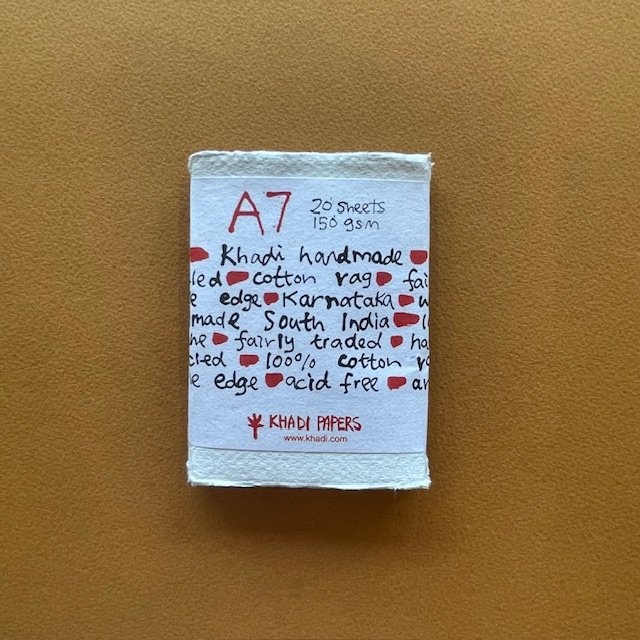 A7 20 sheets
150 gsm
Khadi handmade
cotton rag fai
edge Karnataka
made South India
fairly traded ha
100% cotton
edge acid free
KHADI PAPERS
www.khadi.com